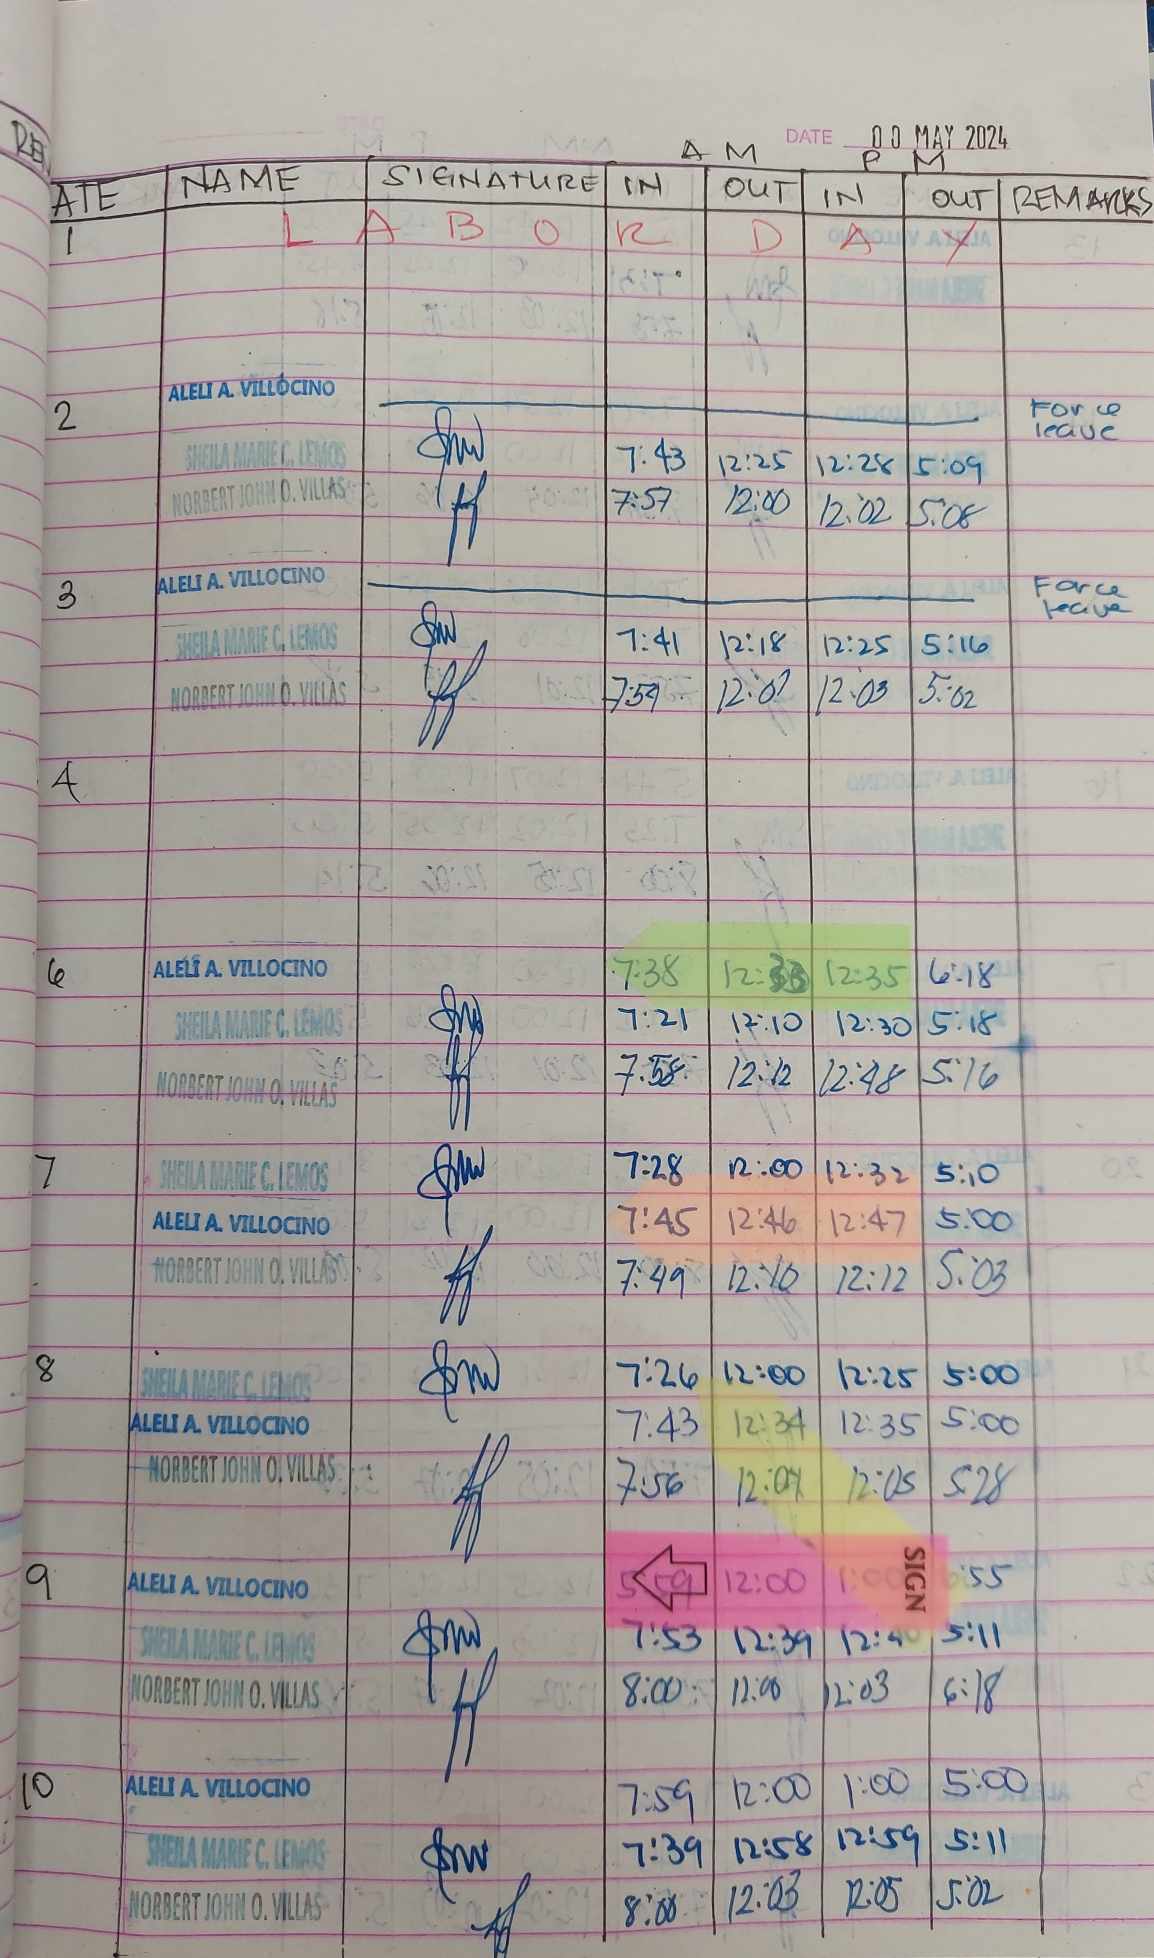 DATE 00 MAY 2024
AM PM
ATE NAME SIGNATURE IN OUT IN OUT REMARKS
1 LABOR DAY
ALELI A. VILLOCINO
2 Force leave
SHEILA MARIE C. LEMOS 7:43 12:25 12:28 5:09
NORBERT JOHN O. VILLAS 7:57 12:00 12:02 5:08
ALELI A. VILLOCINO
3 Force leave
SHEILA MARIE C. LEMOS 7:41 12:18 12:25 5:16
NORBERT JOHN O. VILLAS 7:59 12:03 5:02
4
6 ALELI A. VILLOCINO 7:38 12:33 12:35 6:18
SHEILA MARIE C. LEMOS 7:21 12:10 12:30 5:18
NORBERT JOHN O. VILLAS 7:58 12:12 12:48 5:16
7 SHEILA MARIE C. LEMOS 7:28 12:00 12:32 5:10
ALELI A. VILLOCINO 7:45 12:46 12:47 5:00
NORBERT JOHN O. VILLAS 7:49 12:10 12:12 5:03
8 SHEILA MARIE C. LEMOS 7:26 12:00 12:25 5:00
ALELI A. VILLOCINO 7:43 12:34 12:35 5:00
NORBERT JOHN O. VILLAS 7:56 12:04 12:05 5:28
9 ALELI A. VILLOCINO 12:00 SIGN
SHEILA MARIE C. LEMOS 7:53 12:39 5:11
NORBERT JOHN O. VILLAS 8:00 12:00 12:03 6:18
10 ALELI A. VILLOCINO 7:59 12:00 1:00 5:00
SHEILA MARIE C. LEMOS 7:39 12:58 12:59 5:11
NORBERT JOHN O. VILLAS 8:00 12:03 12:05 5:02